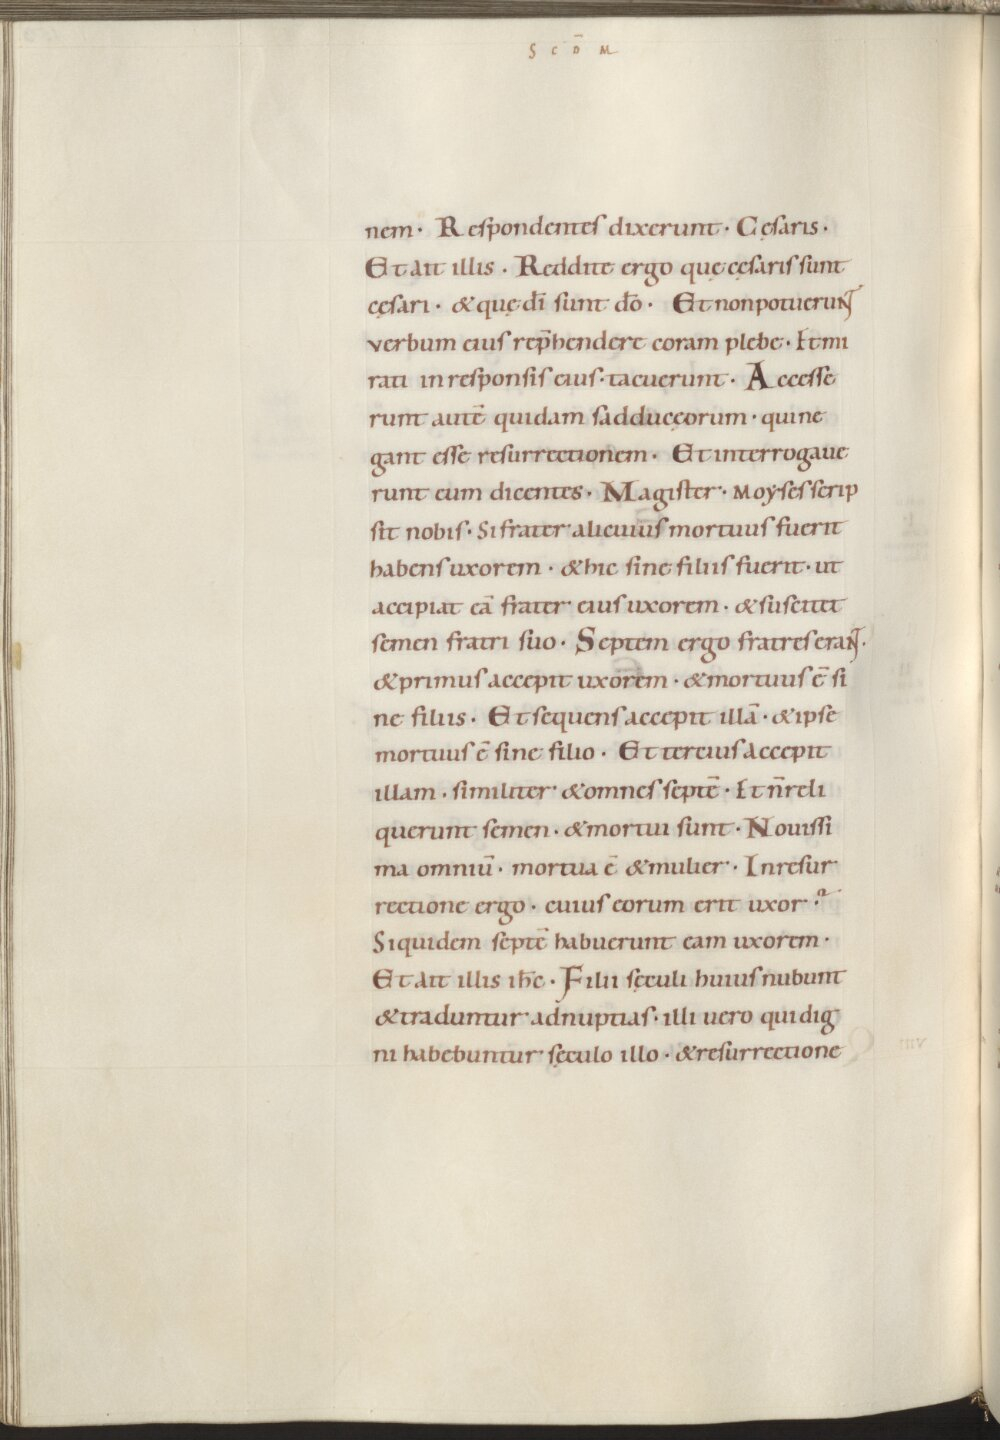 SCD̄M
nem · Respondentes dixerunt · Cęsaris ·
Et ait illis · Reddite ergo quę cęsaris sunt
cęsari · & quę dī sunt dō · Et non potuerunt
verbum eius rep̄hendere coram plebe · Et mi
rati in responsis eius · tacuerunt · Accesse
runt autē quidam sadducęorum · qui ne
gant esse resurrectionem · Et interrogaue
runt eum dicentes · Magister · Moyses scrip
sit nobis · Si frater alicuius mortuus fuerit
habens uxorem · & hic sine filiis fuerit · ut
accipiat eā frater eius uxorem · & suscitet
semen fratri suo · Septem ergo fratres erant ·
& primus accepit uxorem · & mortuus ē si
ne filiis · Et sequens accepit illā · & ipse
mortuus ē sine filio · Et tercius accepit
illam · similiter & omnes septē · Et n̄ reli
querunt semen · & mortui sunt · Nouissi
ma omniū · mortua ē & mulier · In resur
rectione ergo · cuius eorum erit uxor ?
Siquidem septē habuerunt eam uxorem ·
Et ait illis ih̄c · Filii sęculi huius nubunt
& traduntur ad nuptias · illi uero qui dig
ni habebuntur sęculo illo · & resurrectione